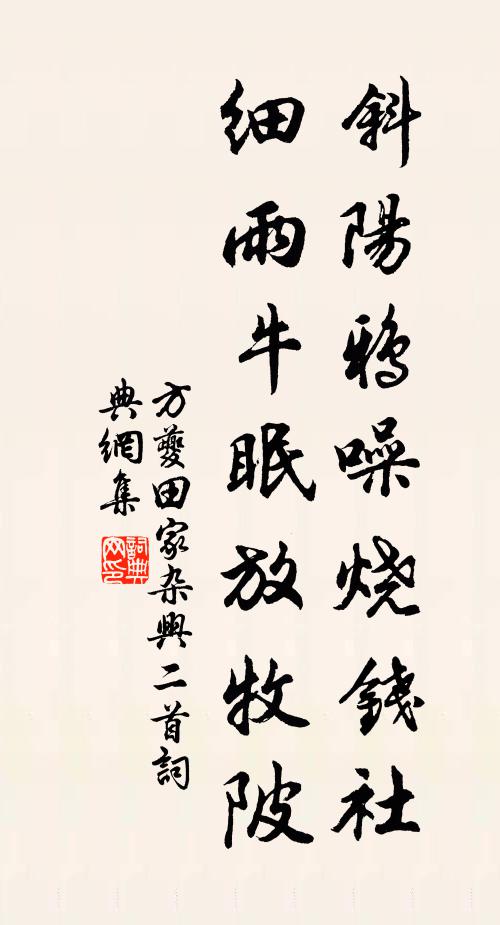 斜陽鴉噪燒錢社
細雨牛眠放牧陂
方夔田家杂興二首詞
典網集
詞典网印